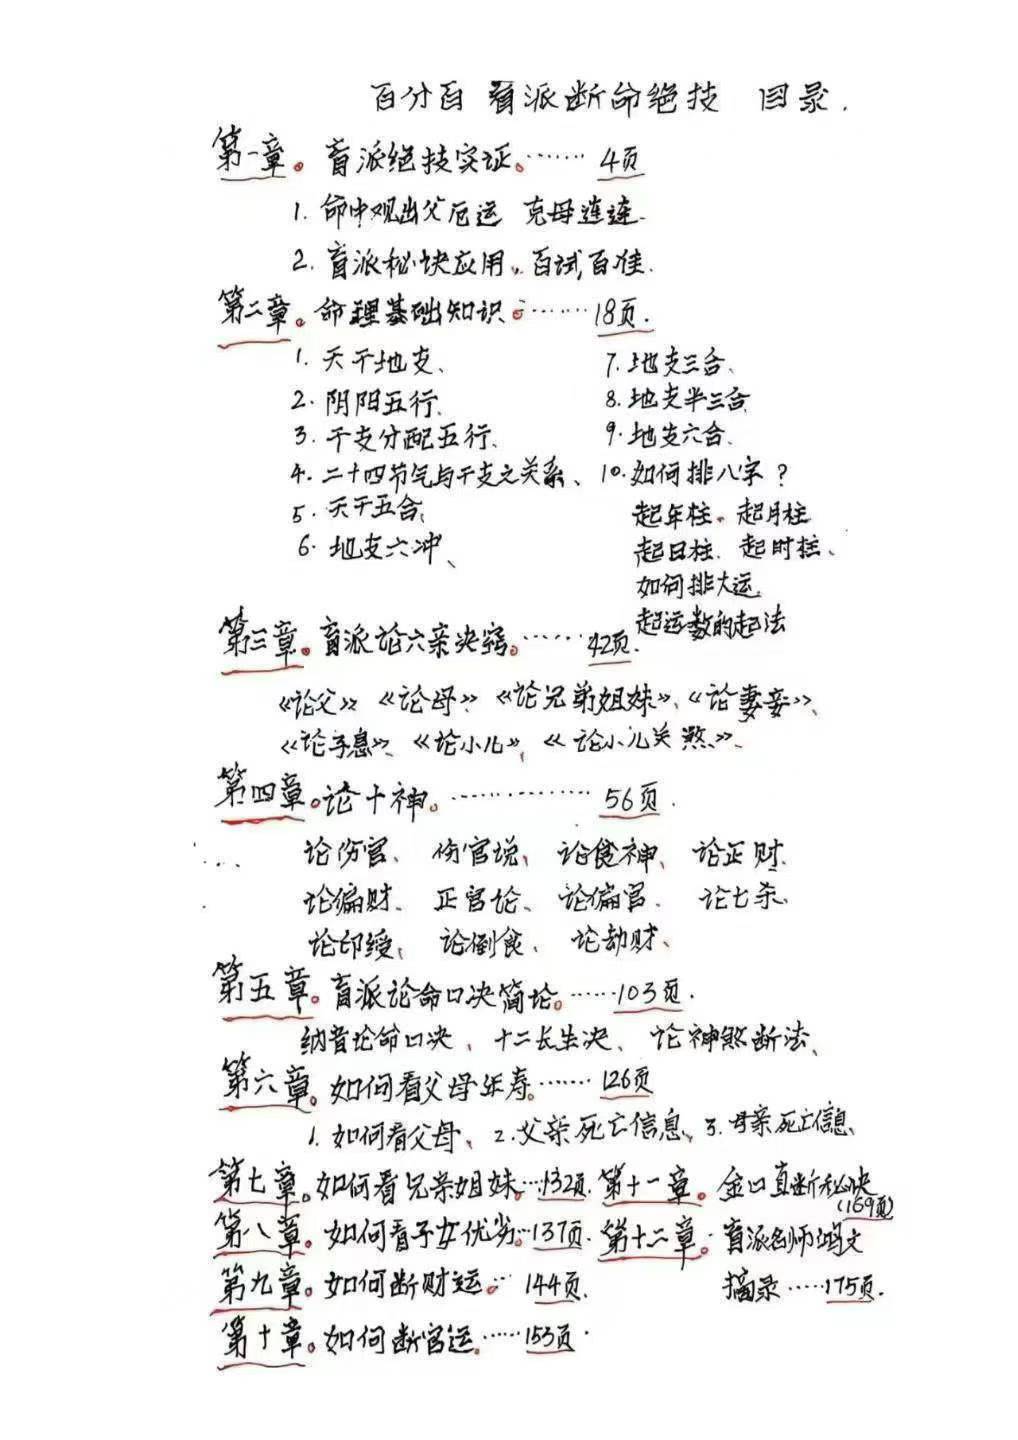 百分百 盲派断命绝技 目录.
第一章。盲派绝技实证。…… 4页
1. 命中观出父厄运 克母连连.
2. 盲派秘诀应用、百试百准.
第二章。命理基础知识。…… 18页.
1. 天干地支、
2. 阴阳五行.
3. 干支分配五行、
4. 二十四节气与干支之关系、
5. 天干五合、
6. 地支六冲、
7. 地支三合、
8. 地支半三合
9. 地支六合、
10. 如何排八字?
起年柱、起月柱
起日柱. 起时柱、
如何排大运.
起运数的起法
第三章。盲派论六亲决窍。…… 42页.
《论父》《论母》《论兄弟姐妹》、《论妻妾》、
《论子息》、《论小儿》、《论小儿关煞》、
第四章。论十神。………… 56页.
论伤官、 伤官说、 论食神、 论正财.
论偏财、 正官论、 论偏官、 论七杀、
论印绶、 论倒食、 论劫财、
第五章。盲派论命口决简论。……103页.
纳音论命口决、十二长生决、 论神煞断法、
第六章。如何看父母年寿。…… 126页
1. 如何看父母、2. 父亲死亡信息、3. 母亲死亡信息、
第七章。如何看兄弟姐妹。…132页.
第八章。如何看子女优劣。…137页.
第九章。如何断财运。… 144页.
第十章。如何断官运。……153页.
第十一章。金口直断秘诀
(169页)
第十二章. 盲派名师鸿文
摘录……175页.